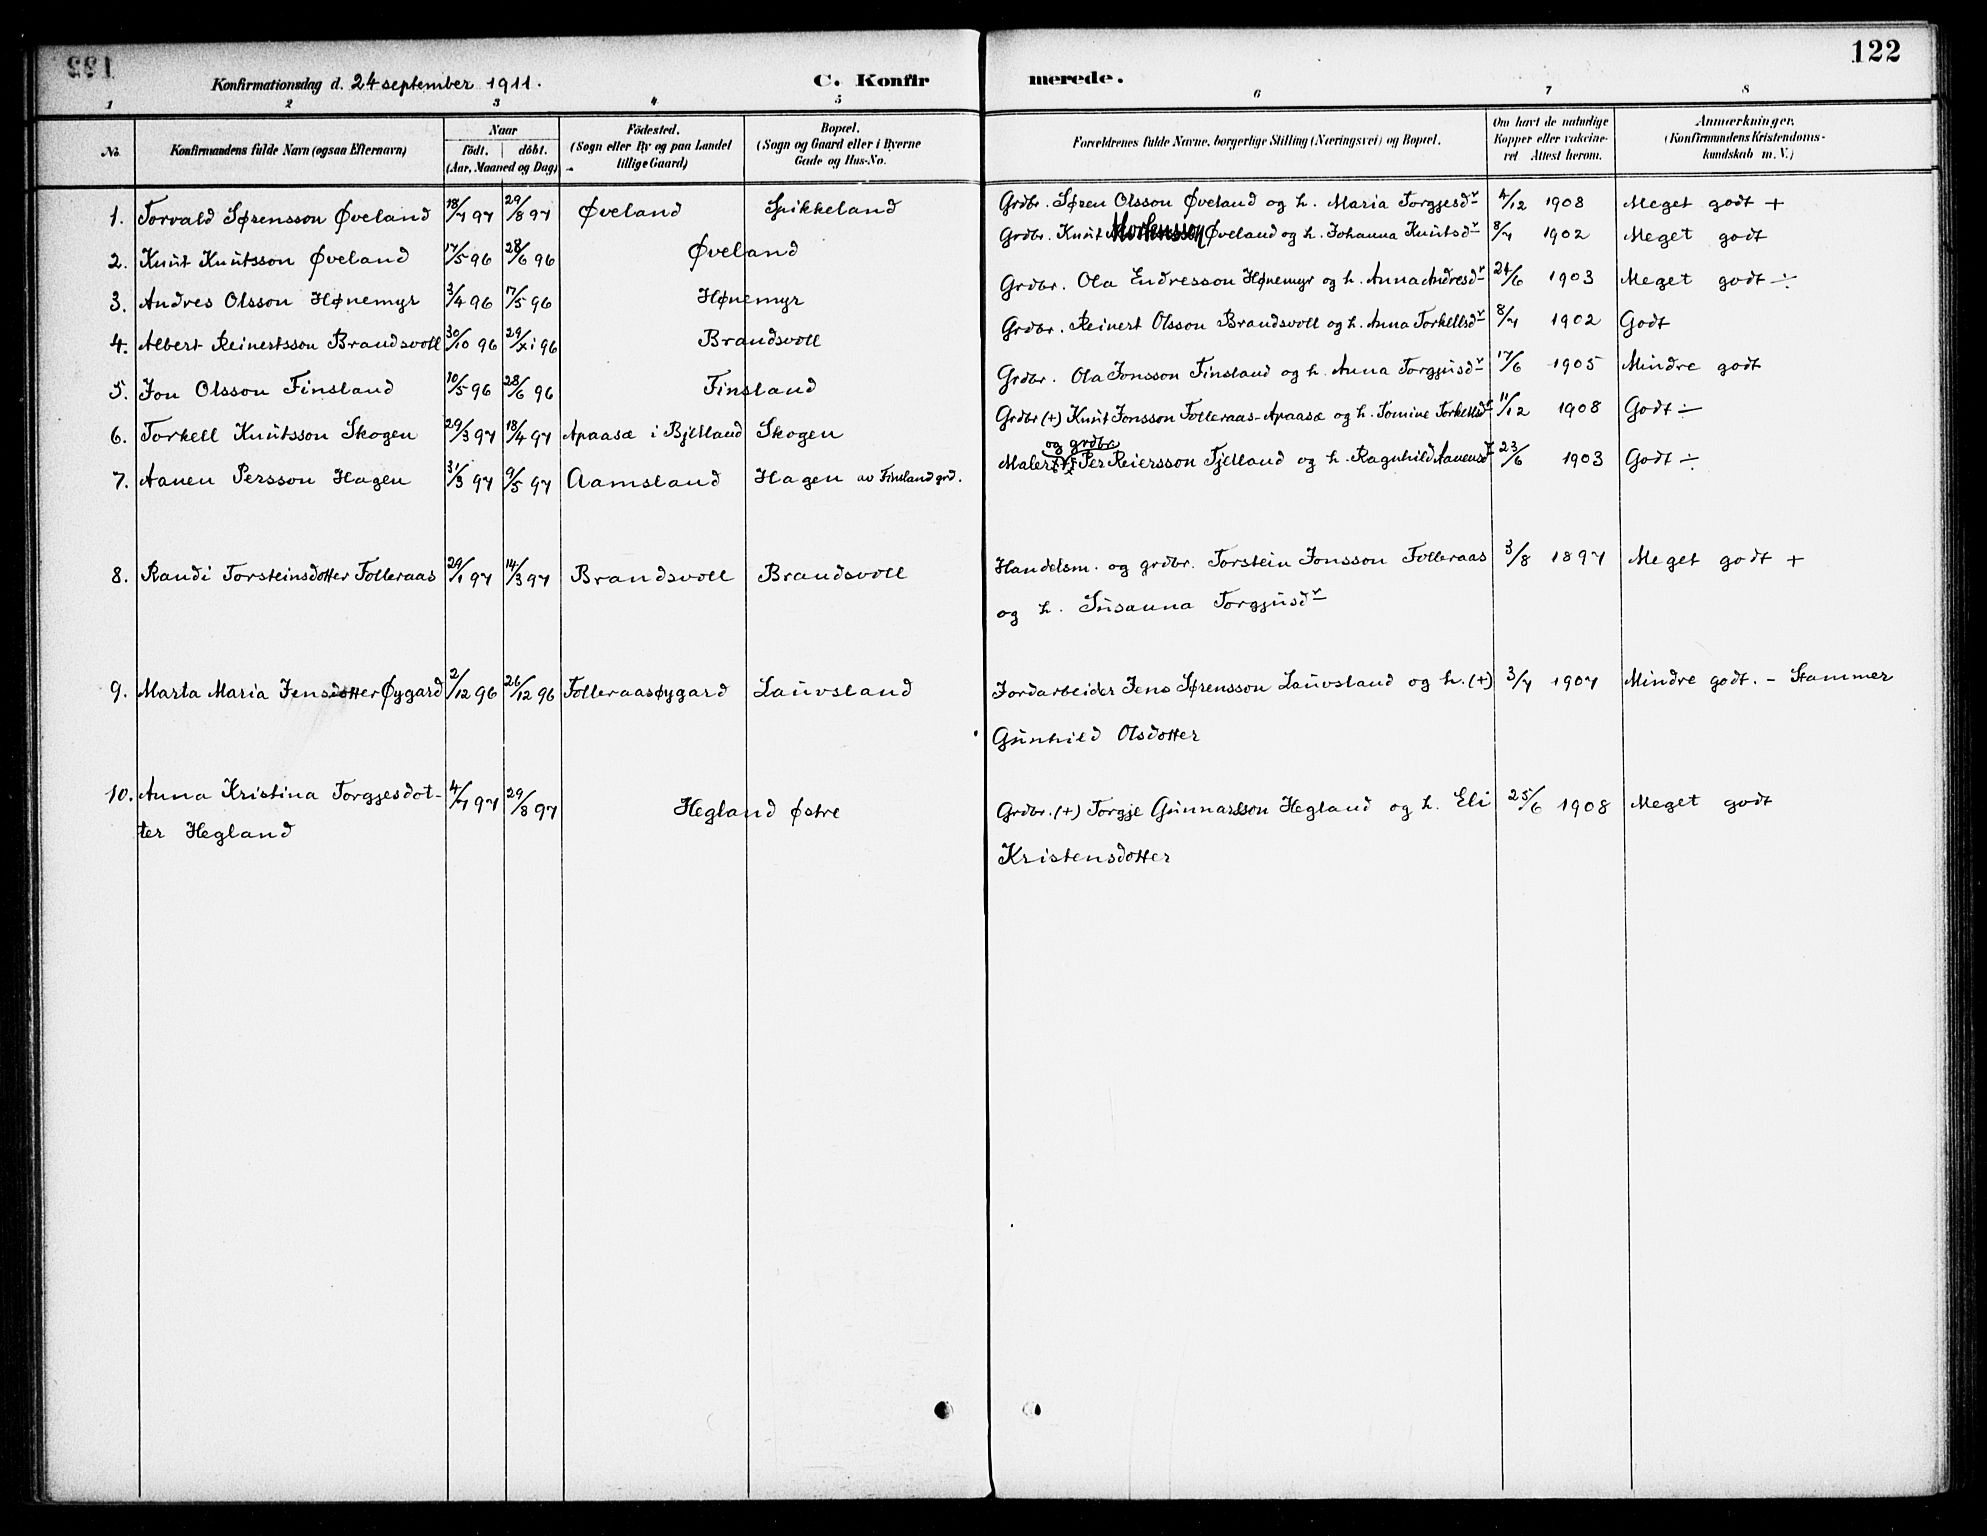 122
Konfirmationsdag d. 24 september 1911. C. Konfirmerede.
1 2 3 4 5 6 7 8
No. Konfirmandens fulde Navn (ogsaa Efternavn) Naar födt. döbt. (Aar, Maaned og Dag) Födested. (Sogn eller By og paa Landet tillige Gaard) Bopæl. (Sogn og Gaard eller i Byerne Gade og Hus-No. Forældrenes fulde Navne, borgerlige Stilling (Næringsvei) og Bopæl. Om havt de naturlige Kopper eller vakcineret Attest herom. Anmærkninger. (Konfirmandens Kristendomskundskab m. V.)
1. Torvald Sørensson Øveland 18/7 97 29/8 97 Øveland Spikkeland Grdbr. Søren Olsson Øveland og h. Maria Torgjesdr 4/12 1908 Meget godt +
2. Knut Knutsson Øveland 17/5 96 28/6 96 Øveland Grdbr. Knut Mortensson Øveland og h. Johanna Knutsdr 8/7 1902 Meget godt
3. Andres Olsson Hønemyr 3/4 96 17/5 96 Hønemyr Grdbr. Ola Endresson Hønemyr og h. Anna Andresdr 24/6 1903 Meget godt ÷
4. Albert Reinertsson Brandsvoll 30/10 96 29/xi 96 Brandsvoll Grdbr. Reinert Olsson Brandsvoll og h. Anna Torkellsdr 8/7 1902 Godt
5. Jon Olsson Finsland 10/5 96 28/6 96 Finsland Grdbr. Ola Jonsson Finsland og h. Anna Torgjusdr 17/6 1905 Mindre godt
6. Torkell Knutsson Skogen 29/3 97 18/4 97 Apaasæ i Bjelland Skogen Grdbr (+) Knut Jonsson Tolleraas-Apaasæ og h. Tomine Torkellsdr 11/12 1908 Godt ÷
og grdbr.
7. Aanen Persson Hagen 31/3 97 9/5 97 Aamsland Hagen av Finsland grd. Maler Per Reiersson Fjelland og h. Ragnhild Aanensdr 23/6 1903 Godt ÷
8. Randi Torsteinsdotter Tolleraas 29/1 97 14/3 97 Brandsvoll Brandsvoll Handelsm. og grdbr. Torstein Jonsson Tolleraas 3/8 1897 Meget godt +
og h. Susanna Torgjusdr
9. Marta Maria Jensdotter Øygard 2/12 96 26/12 96 Tolleraasøygard Lauvsland Jordarbeider Jens Sørensson Lauvsland og h. (+) 3/7 1907 Mindre godt. - Stammer
Gunhild Olsdotter
10. Anna Kristina Torgjesdot-
ter Hegland 4/7 97 29/8 97 Hegland østre Grdbr. (+) Torgje Gunnarsson Hegland og h. Eli 25/6 1908 Meget godt
Kristensdotter